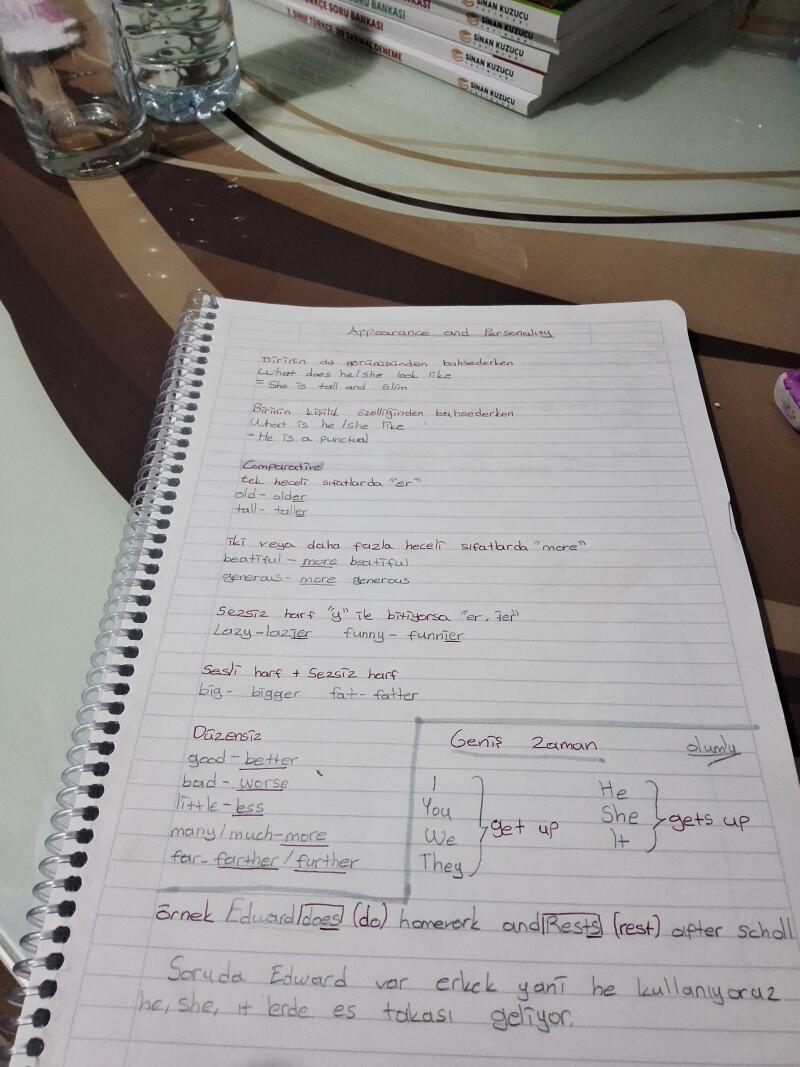 SORU BANKASI
SORU BANKASI
7. SINIF TÜRKÇE 20 SARMAL DENEME
SİNAN KUZUCU
SİNAN KUZUCU
YAYINLARI
SİNAN KUZUCU
YAYINLARI
SİNAN KUZUCU
YAYINLARI
Appearance and Personality
Birinin dış görünüşünden bahsederken
What does he/she look like
= She is tall and slim
Birinin kişilik özelliğinden bahsederken
What is he/she like
- He is a punctual
Comparative
tek heceli sıfatlarda "er"
old- older
tall- taller
iki veya daha fazla heceli sıfatlarda "more"
beatiful - more beatiful
generous- more generous
Sezsiz harf "y" ile bitiyorsa "er, ier"
Lazy-lazier funny- funnier
Sesli harf + Sezsiz harf
big- bigger fat- fatter
Düzensiz
good-better
bad- worse
little-less
many/much-more
far- farther/further
Geniş Zaman olumlu
I
You
We
They
get up
He
She
It
gets up
örnek Edward does (do) homework and Rests (rest) after scholl
Soruda Edward var erkek yani he kullanıyoruz
he, she, it lerde es takası geliyor.